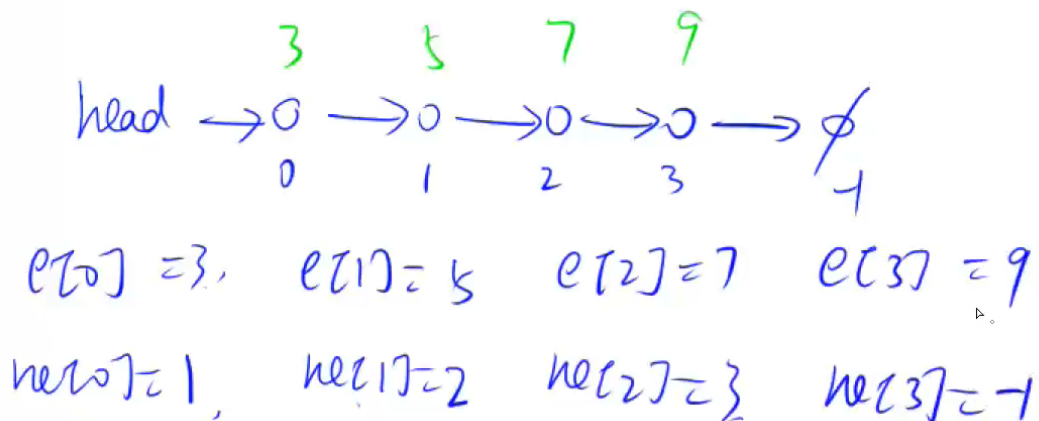 3 5 7 9
head → o → o → o → o → ∅
0 1 2 3 -1
e[0] =3, e[1]= 5 e[2]=7 e[3] = 9
ne[0]=1, ne[1]=2 ne[2]=3 ne[3]=-1